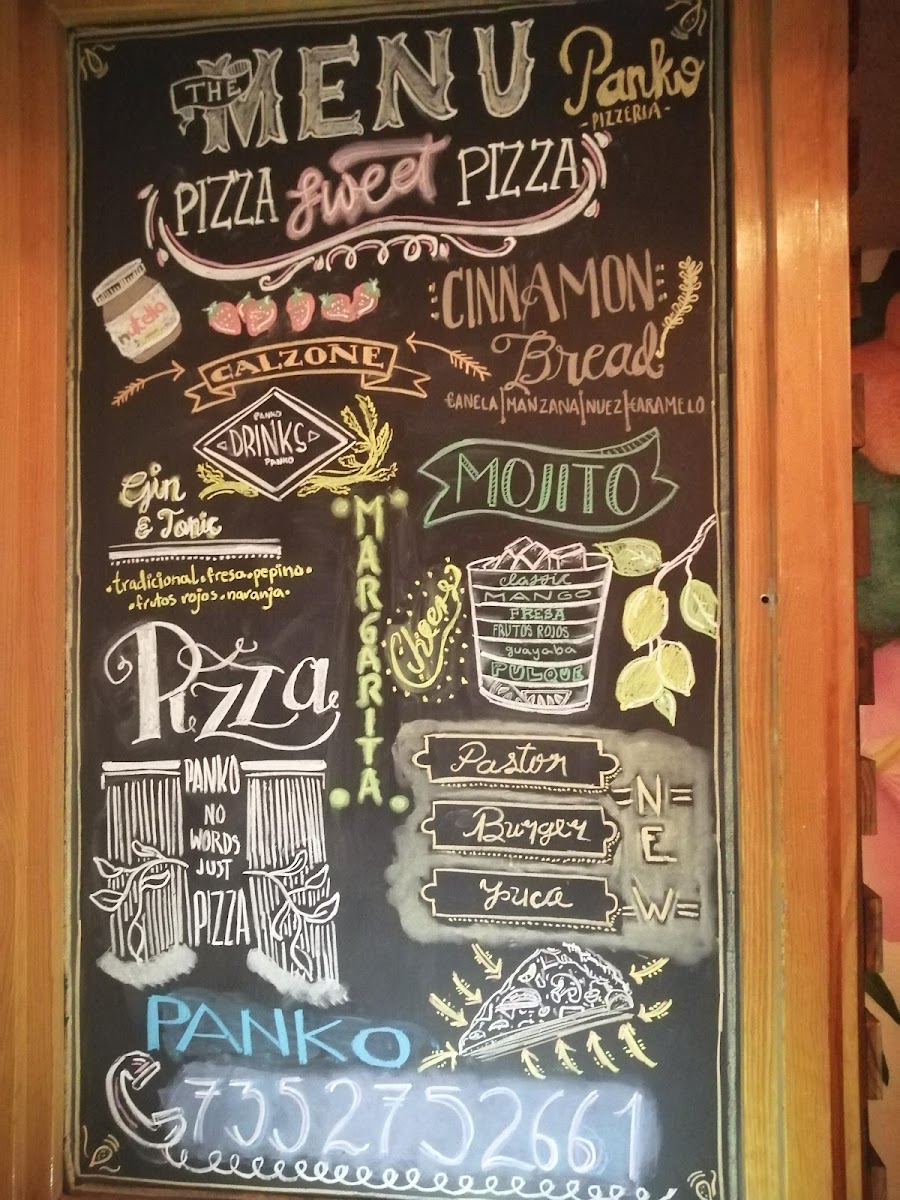 THE MENU
Panko
- PIZZERIA -
PIZZA sweet PIZZA
nutella
CINNAMON
Bread
CANELA|MANZANA|NUEZ|CARAMELO
CALZONE
PANKO
DRINKS
PANKO
Gin
& Tonic
•tradicional•fresa•pepino•
•frutos rojos•naranja•
MARGARITA
MOJITO
Cheers
classic
MANGO
FRESA
FRUTOS ROJOS
guayaba
PULQUE
Pizza
PANKO
NO
WORDS
JUST
PIZZA
Pastor
Burger
Yuca
=N=
E
=W=
PANKO
7352752661